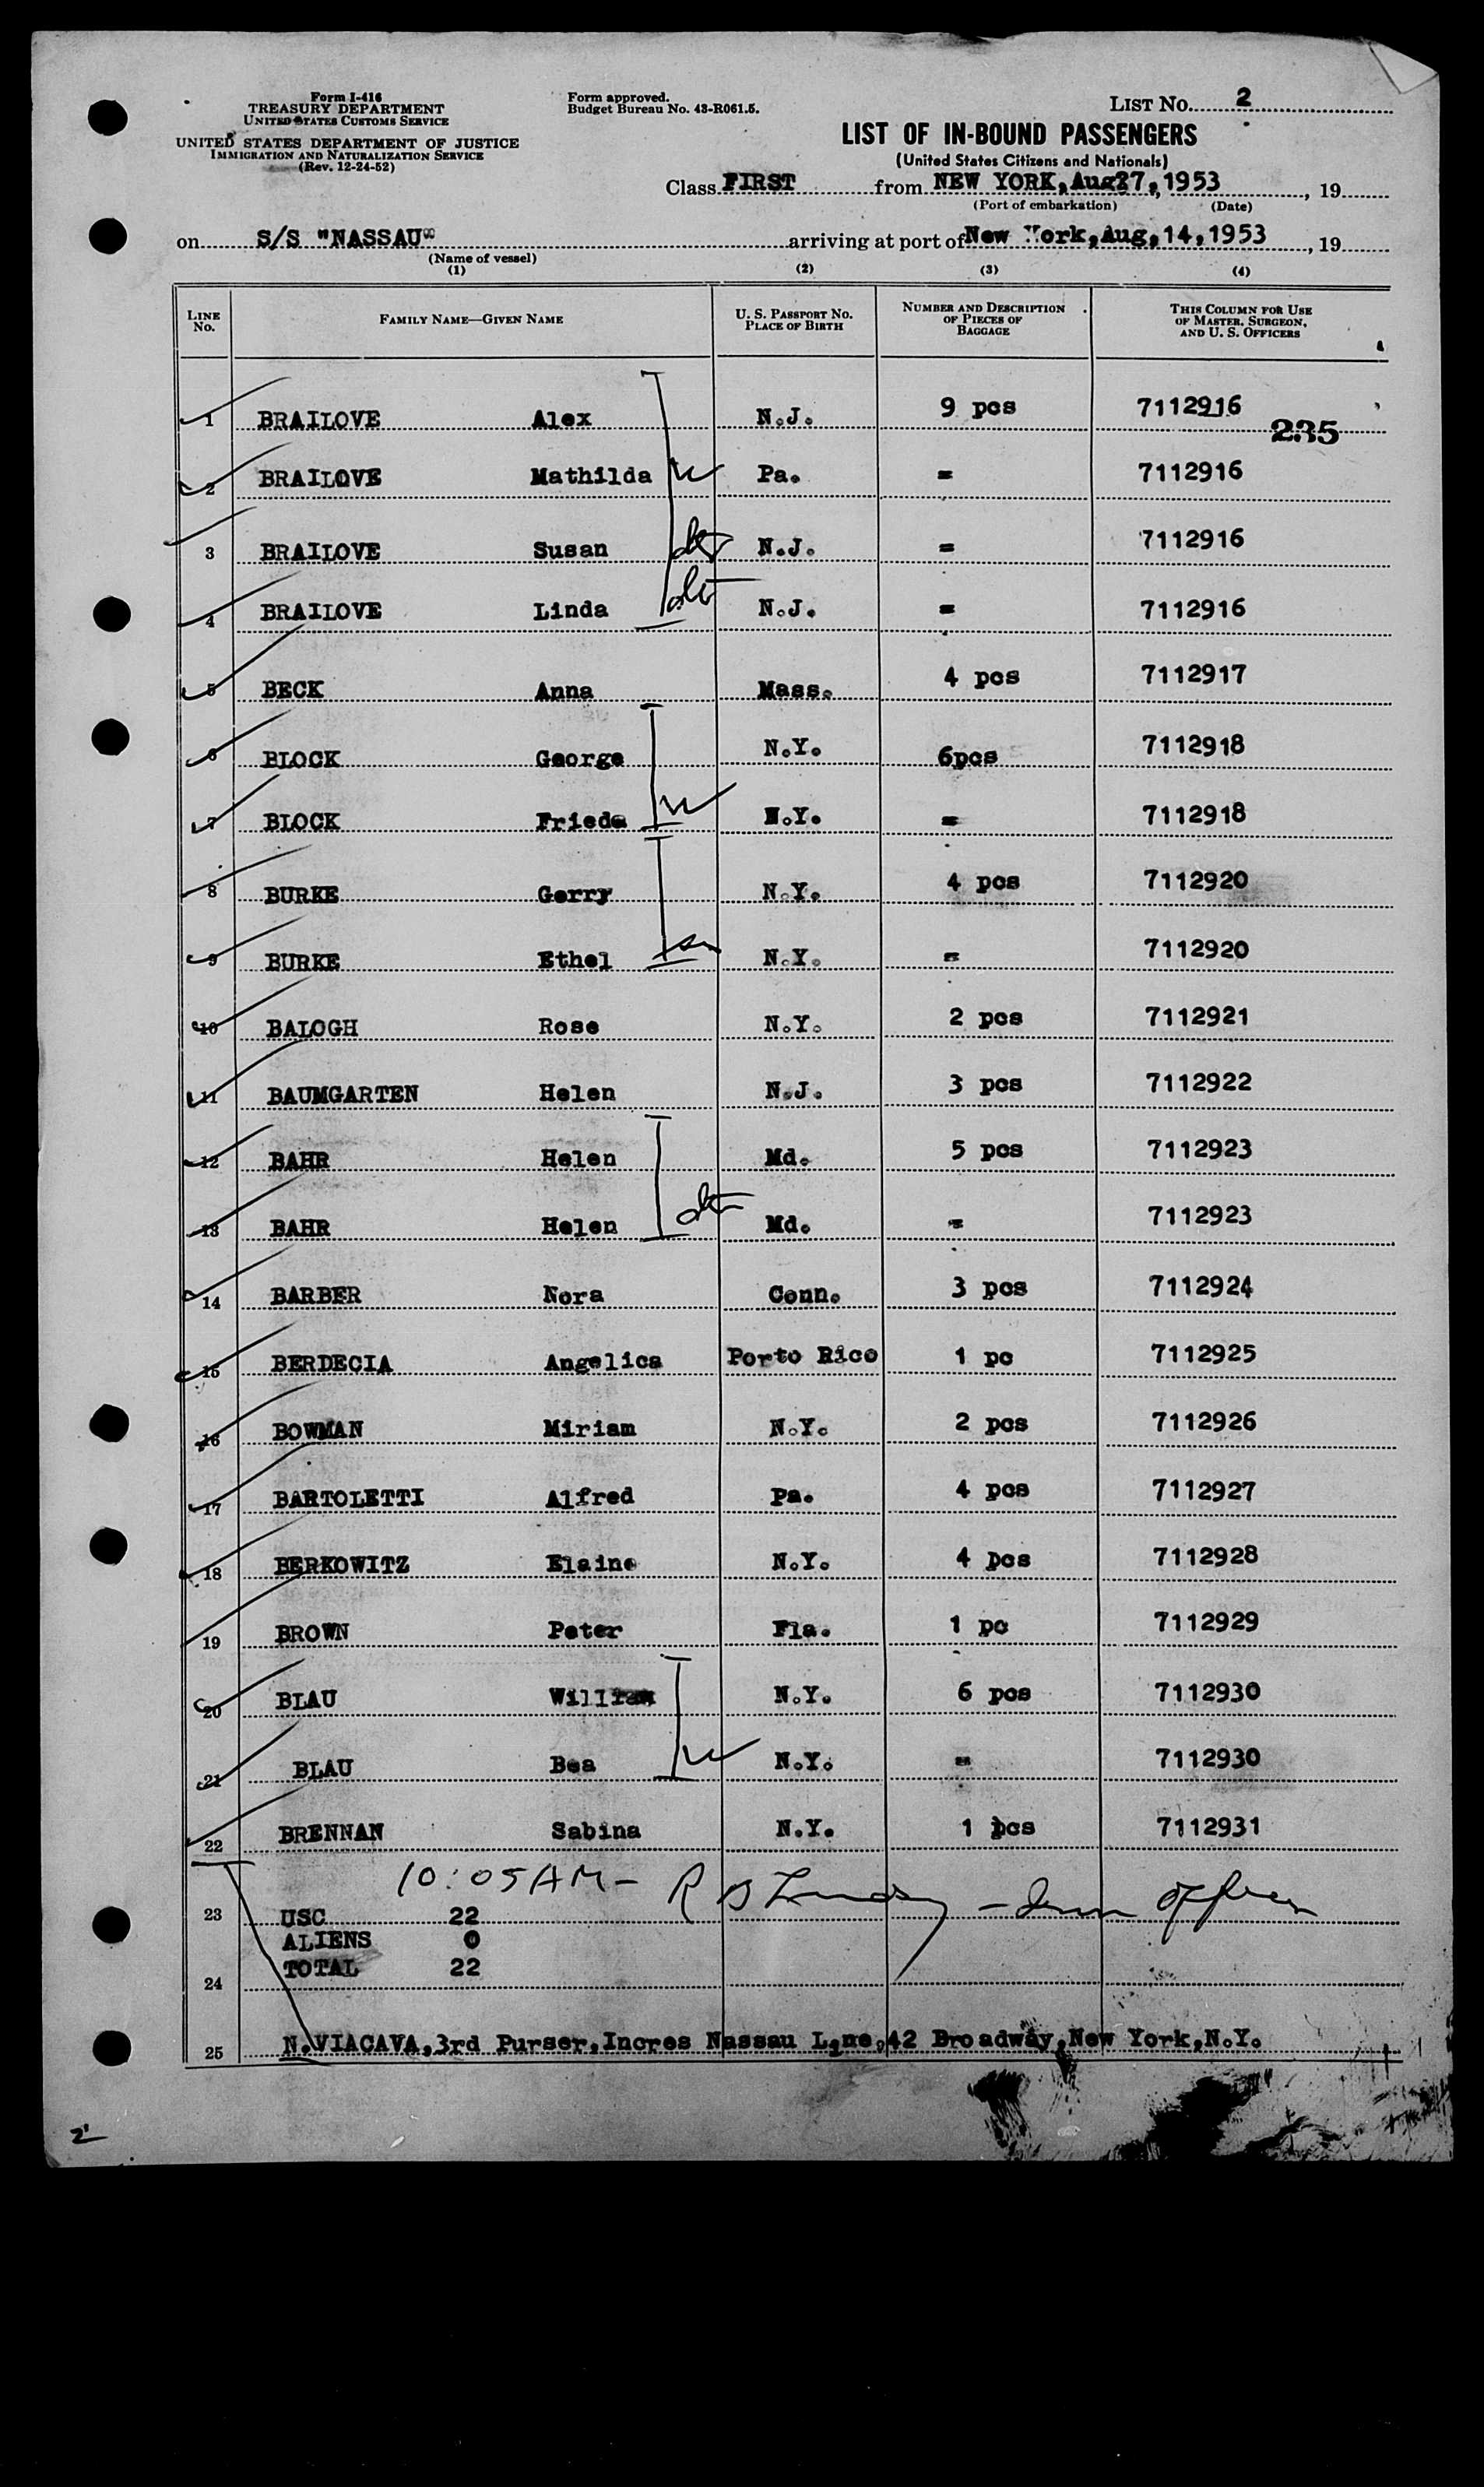 Form I-416
TREASURY DEPARTMENT
UNITED STATES CUSTOMS SERVICE
UNITED STATES DEPARTMENT OF JUSTICE
IMMIGRATION AND NATURALIZATION SERVICE
(Rev. 12-24-52)
Form approved.
Budget Bureau No. 43-R061.5.
LIST No. 2
LIST OF IN-BOUND PASSENGERS
(United States Citizens and Nationals)
Class FIRST from NEW YORK, Aug 7, 1953, 19
(Port of embarkation) (Date)
on S/S "NASSAU" arriving at port of New York, Aug, 14, 1953, 19
(Name of vessel)
(1) (2) (3) (4)
LINE No. FAMILY NAME—GIVEN NAME U. S. PASSPORT NO. PLACE OF BIRTH NUMBER AND DESCRIPTION OF PIECES OF BAGGAGE THIS COLUMN FOR USE OF MASTER, SURGEON, AND U. S. OFFICERS
1 BRAILOVE Alex N.J. 9 pcs 7112916 235
2 BRAILOVE Mathilda W Pa. = 7112916
3 BRAILOVE Susan dtr N.J. = 7112916
4 BRAILOVE Linda dtr N.J. = 7112916
5 BECK Anna Mass. 4 pcs 7112917
6 BLOCK George N.Y. 6pcs 7112918
7 BLOCK Frieda W N.Y. = 7112918
8 BURKE Gerry N.Y. 4 pcs 7112920
9 BURKE Ethel N.Y. = 7112920
10 BALOGH Rose N.Y. 2 pcs 7112921
11 BAUMGARTEN Helen N.J. 3 pcs 7112922
12 BAHR Helen Md. 5 pcs 7112923
13 BAHR Helen dtr Md. = 7112923
14 BARBER Nora Conn. 3 pcs 7112924
15 BERDECIA Angelica Porto Rico 1 pc 7112925
16 BOWMAN Miriam N.Y. 2 pcs 7112926
17 BARTOLETTI Alfred Pa. 4 pcs 7112927
18 BERKOWITZ Elaine N.Y. 4 pcs 7112928
19 BROWN Peter Fla. 1 pc 7112929
20 BLAU William N.Y. 6 pcs 7112930
21 BLAU Bea W N.Y. = 7112930
22 BRENNAN Sabina N.Y. 1 pcs 7112931
10:05 AM - R
23 USC 22
ALIENS 0
24 TOTAL 22
25 N.VIACAVA, 3rd Purser, Incres Nassau Line, 42 Broadway, New York, N.Y.
2